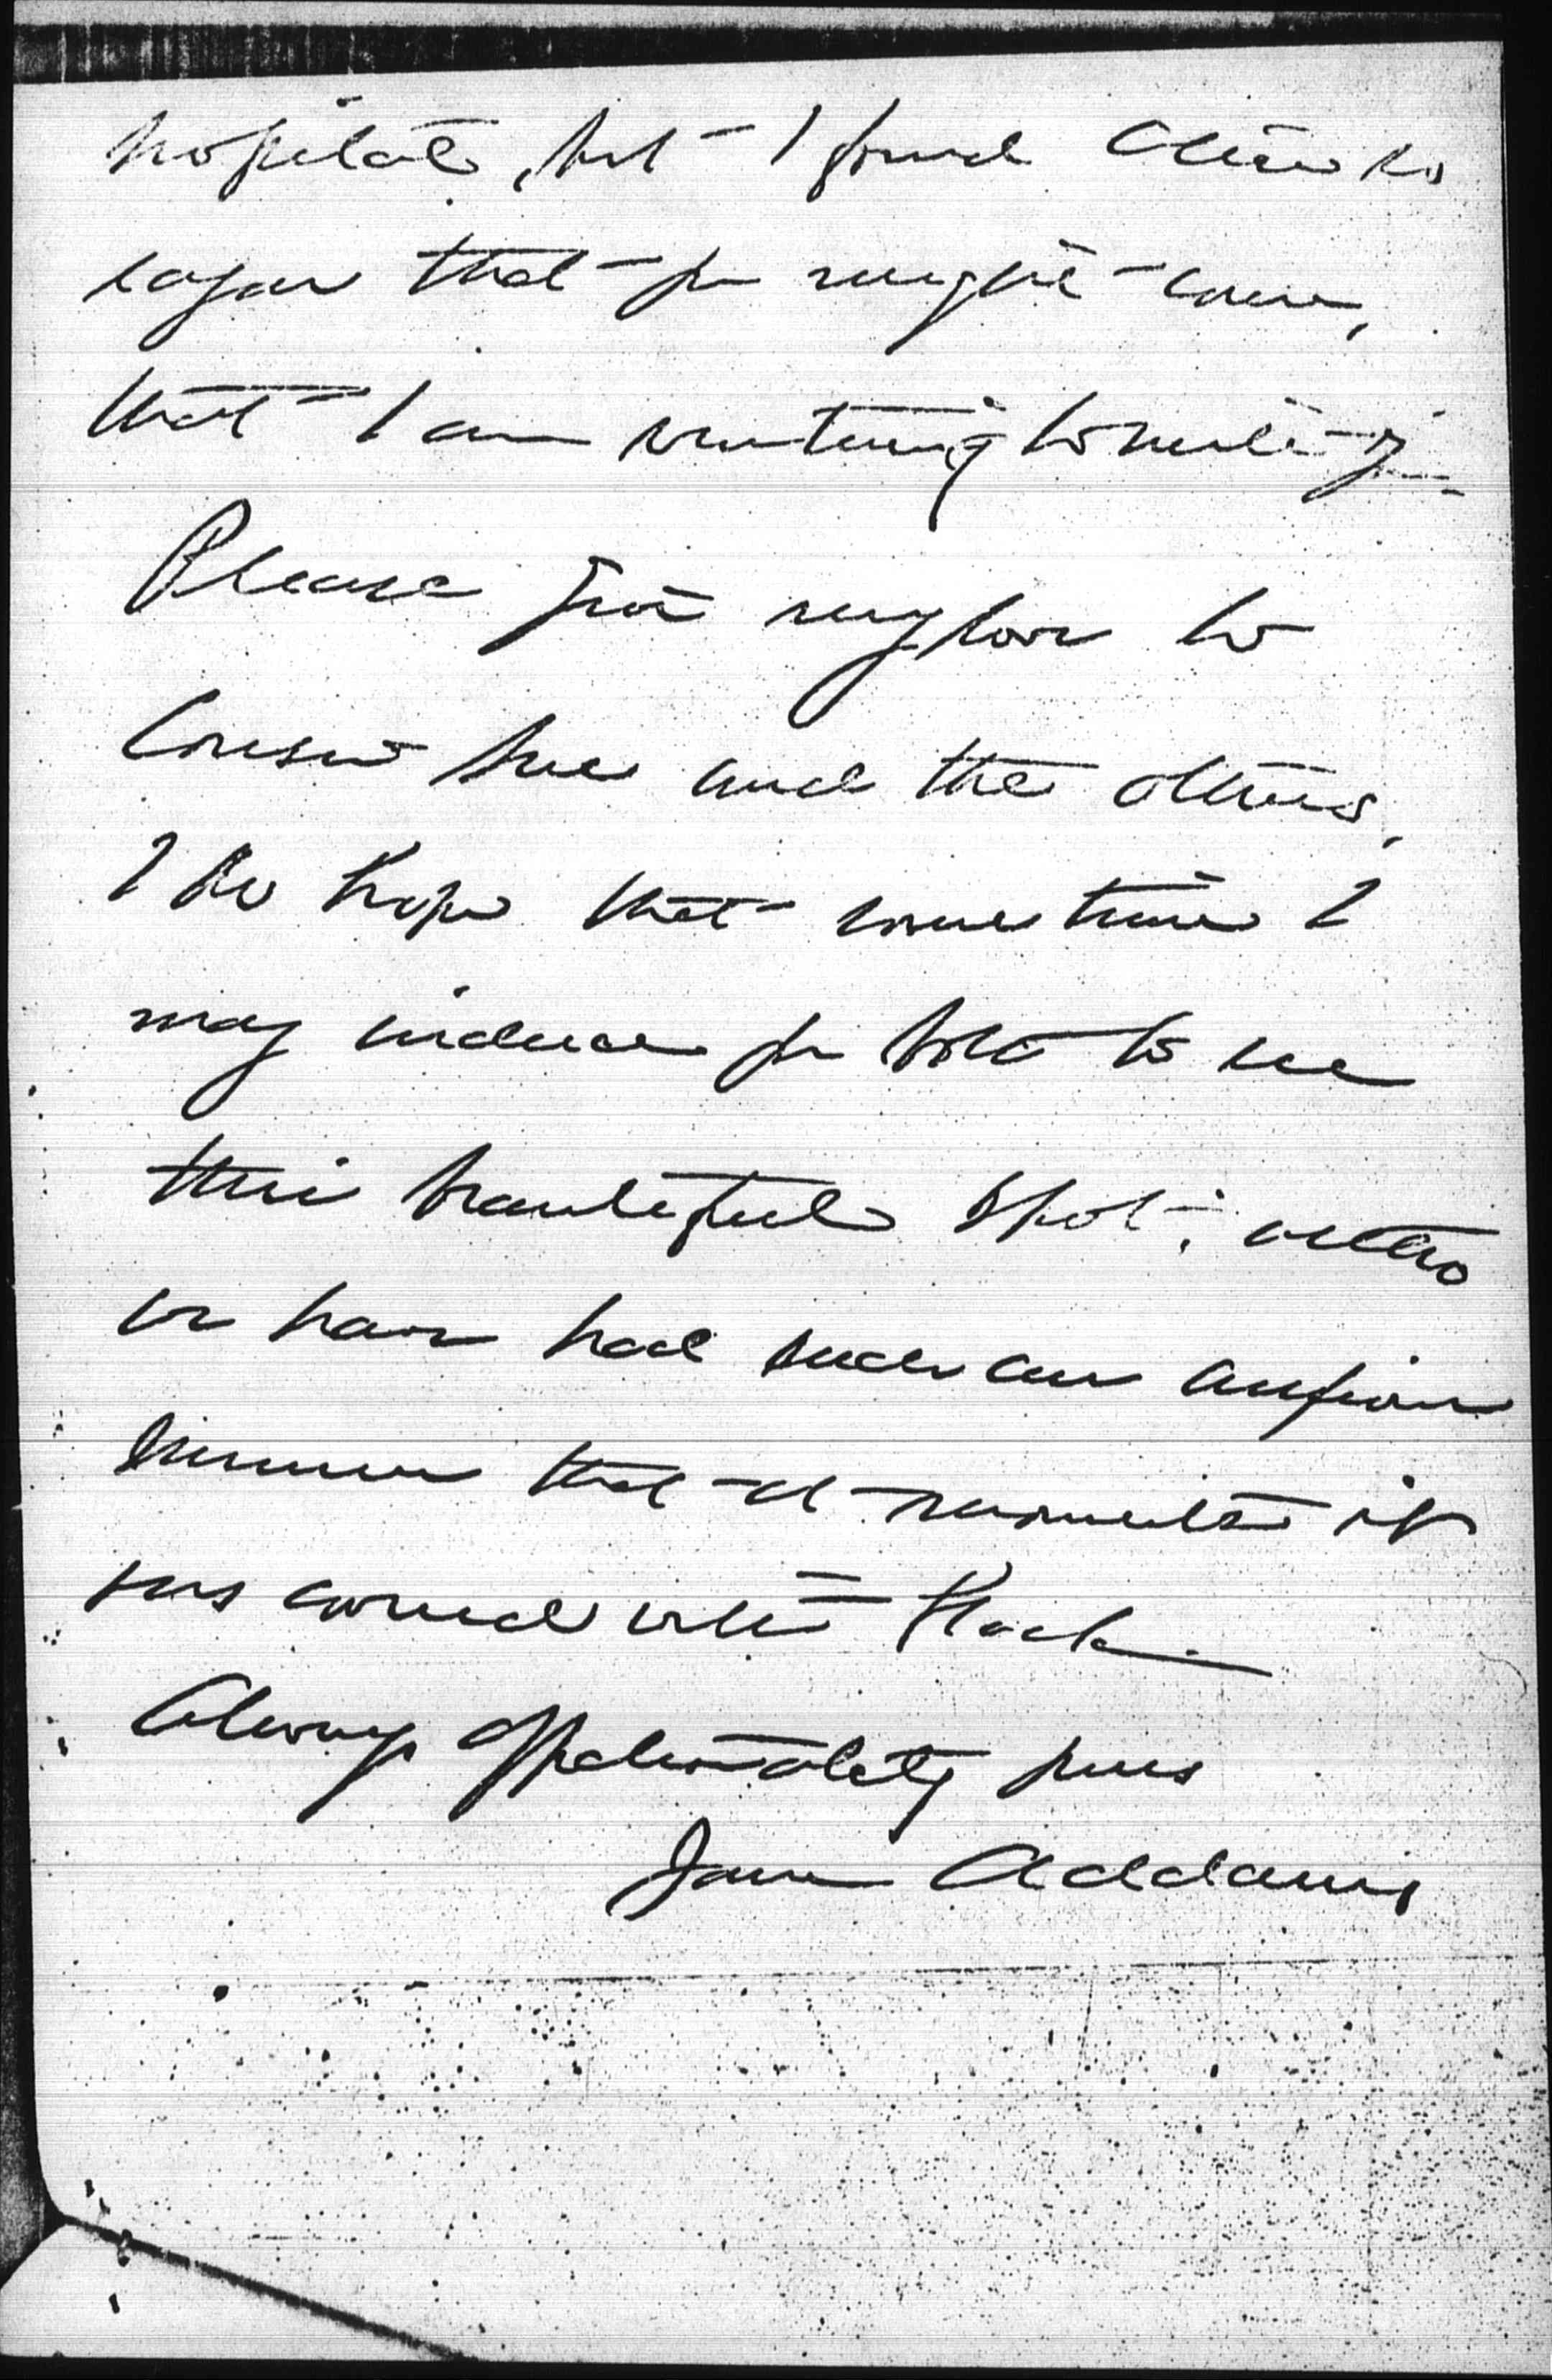 hospital, but I found Clara so
eager that you might come,
that I am venturing to write you
Please give my love to
Cousin Sue and the others,
I do hope that sometime I
may induce you both to see
this beautiful spot, altho
we have had such an anxious
summer that at moments it
was covered with black.
Always affectionately yours
Jane Addams